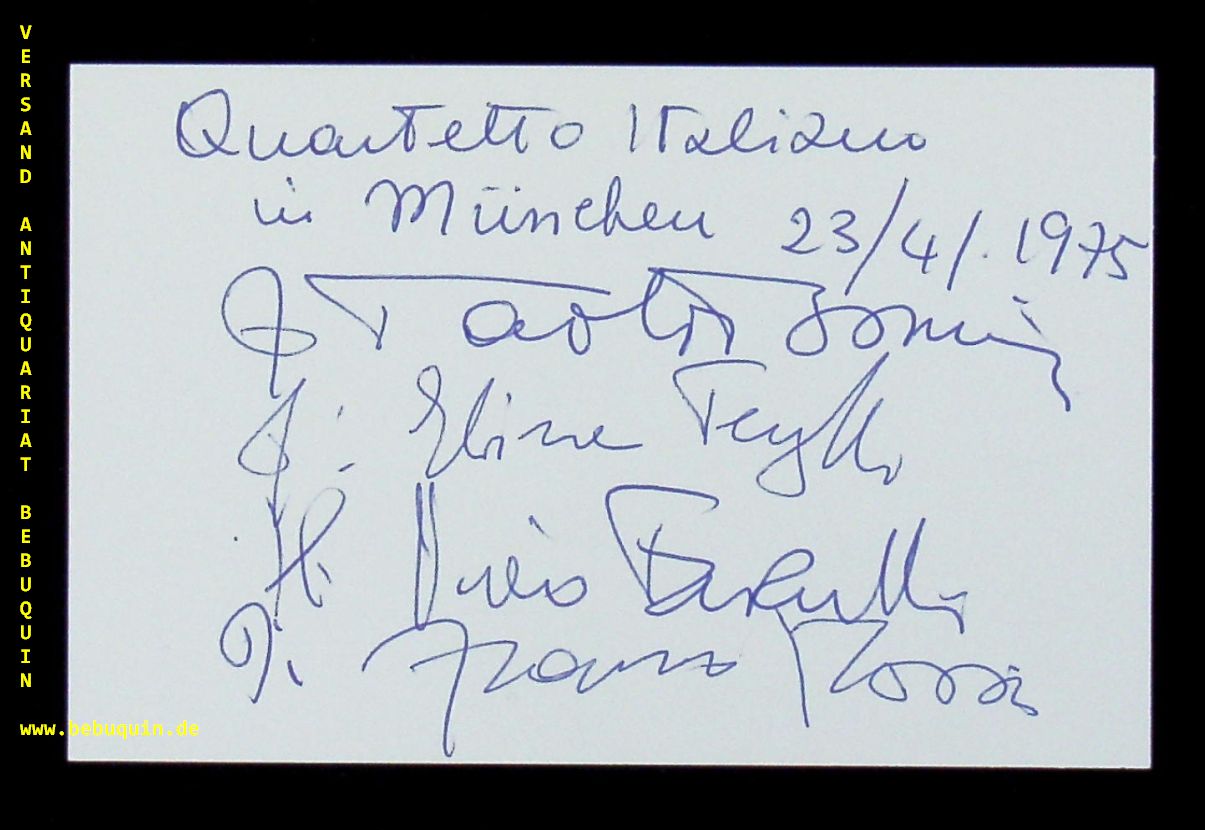 VERSAND ANTIQUARIAT BEBUQUIN
www.bebuquin.de
Quartetto Italiano
in München 23/4/. 1975
Paolo Borciani
Elisa Pegreffi
Piero Farulli
Franco Rossi